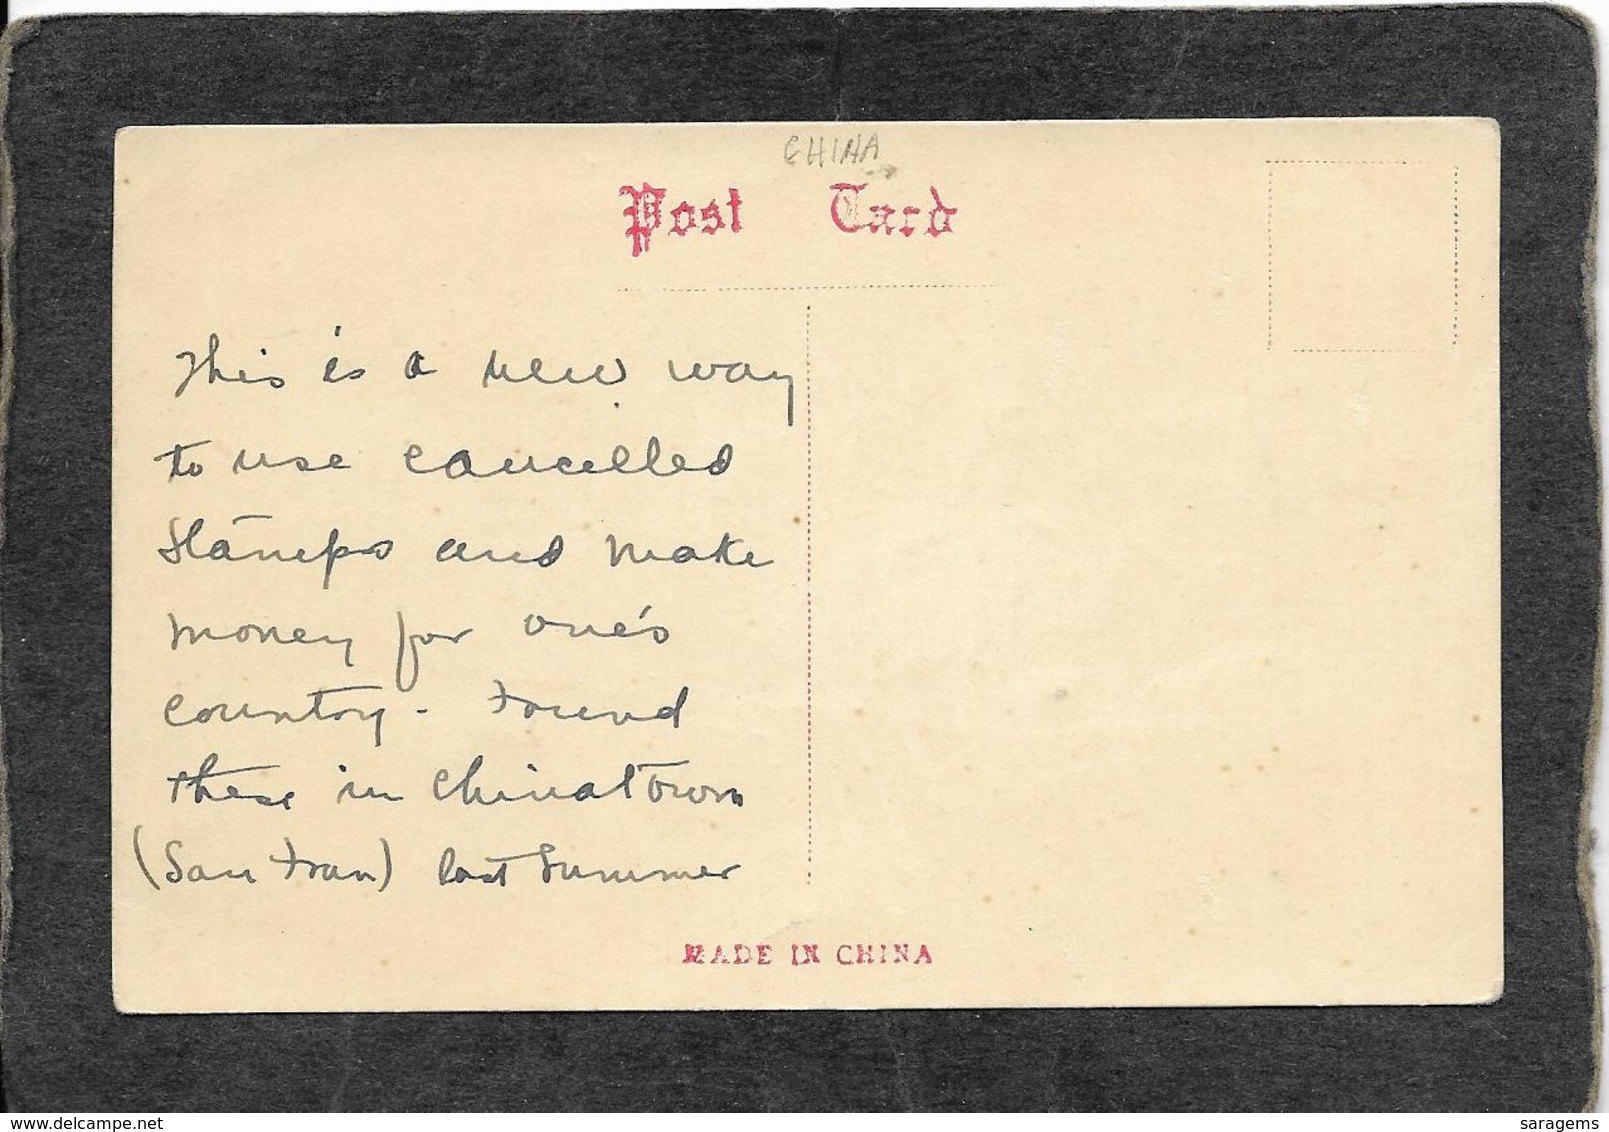 CHINA
Post Card
This is a new way
to use cancelled
stamps and make
money for one's
country - Found
these in Chinatown
(San Fran) last summer
MADE IN CHINA
www.delcampe.net
saragems